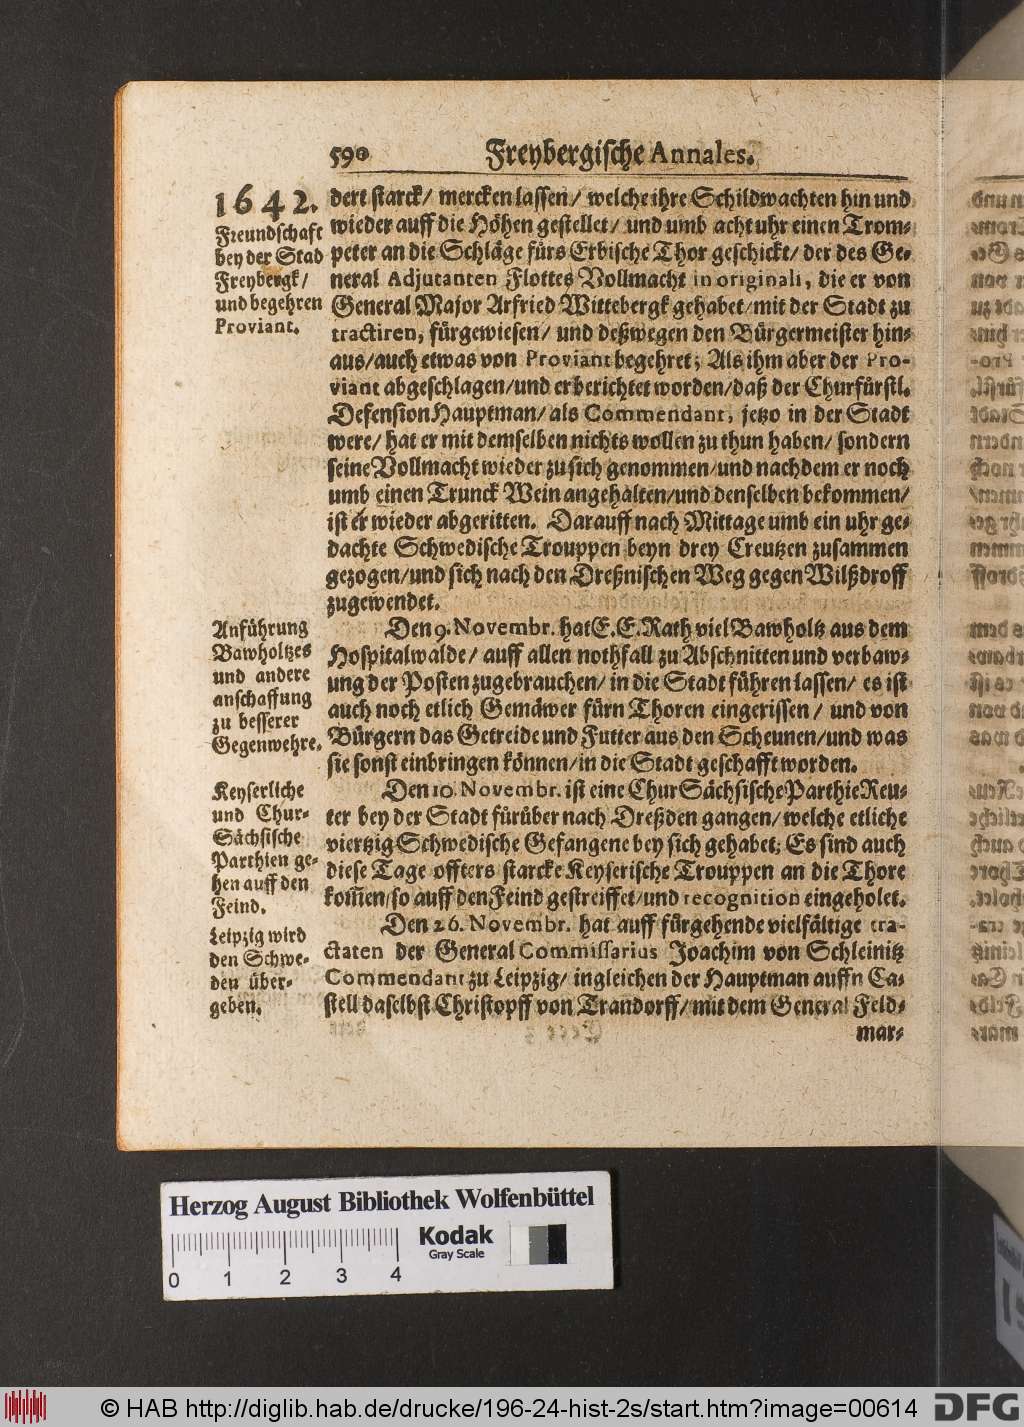 590 Freybergische Annales.
1642.
Freundschaft
bey der Stad
Freybergk/
und begehren
Proviant.
dert starck/ mercken lassen/ welche ihre Schildwachten hin und
wieder auff die Höhen gestellet/ und umb acht uhr einen Trom-
peter an die Schläge fürs Erbische Thor geschickt/ der des Ge-
neral Adjutanten Flottes Vollmacht in originali, die er von
General Major Arfried Wittebergk gehabet/mit der Stadt zu
tractiren, fürgewiesen/ und deßwegen den Bürgermeister hin-
aus/auch etwas von Proviant begehret; Als ihm aber der Pro-
viant abgeschlagen/und er berichtet worden/daß der Churfürstl.
Defension Hauptman/ als Commendant, jetzo in der Stadt
were/ hat er mit demselben nichts wollen zu thun haben/ sondern
seine Vollmacht wieder zu sich genommen/und nachdem er noch
umb einen Trunck Wein angehalten/und denselben bekommen/
ist er wieder abgeritten. Darauff nach Mittage umb ein uhr ge-
dachte Schwedische Trouppen beyn drey Creutzen zusammen
gezogen/und sich nach den Dreßnischen Weg gegen Wilßdroff
zugewendet.
Anführung
Bawholtzes
und andere
anschaffung
zu besserer
Gegenwehre.
Den 9. Novembr. hat E. E. Rath viel Bawholtz aus dem
Hospitalwalde/ auff allen nothfall zu Abschnitten und verbaw-
ung der Posten zugebrauchen/ in die Stadt führen lassen/ es ist
auch noch etlich Gemäwer fürn Thoren eingerissen/ und von
Bürgern das Getreide und Futter aus den Scheunen/und was
sie sonst einbringen können/in die Stadt geschafft worden.
Keyserliche
und Chur-
Sächsische
Parthien ge-
hen auff den
Feind.
Den 10. Novembr. ist eine ChurSächsische Parthie Reu-
ter bey der Stadt fürüber nach Dreßden gangen/ welche etliche
viertzig Schwedische Gefangene bey sich gehabet; Es sind auch
diese Tage offters starcke Keyserische Trouppen an die Thore
kom̃en/so auff den Feind gestreiffet/und recognition eingeholet.
Leipzig wird
den Schwe-
den über-
geben.
Den 26. Novembr. hat auff fürgehende vielfältige tra-
ctaten der General Commissarius Joachim von Schleinitz
Commendant zu Leipzig/ ingleichen der Hauptman auffn Ca-
stell daselbst Christopff von Trandorff/ mit dem General Feld-
mar-
Herzog August Bibliothek Wolfenbüttel
Kodak
Gray Scale
0 1 2 3 4
© HAB http://diglib.hab.de/drucke/196-24-hist-2s/start.htm?image=00614
DFG